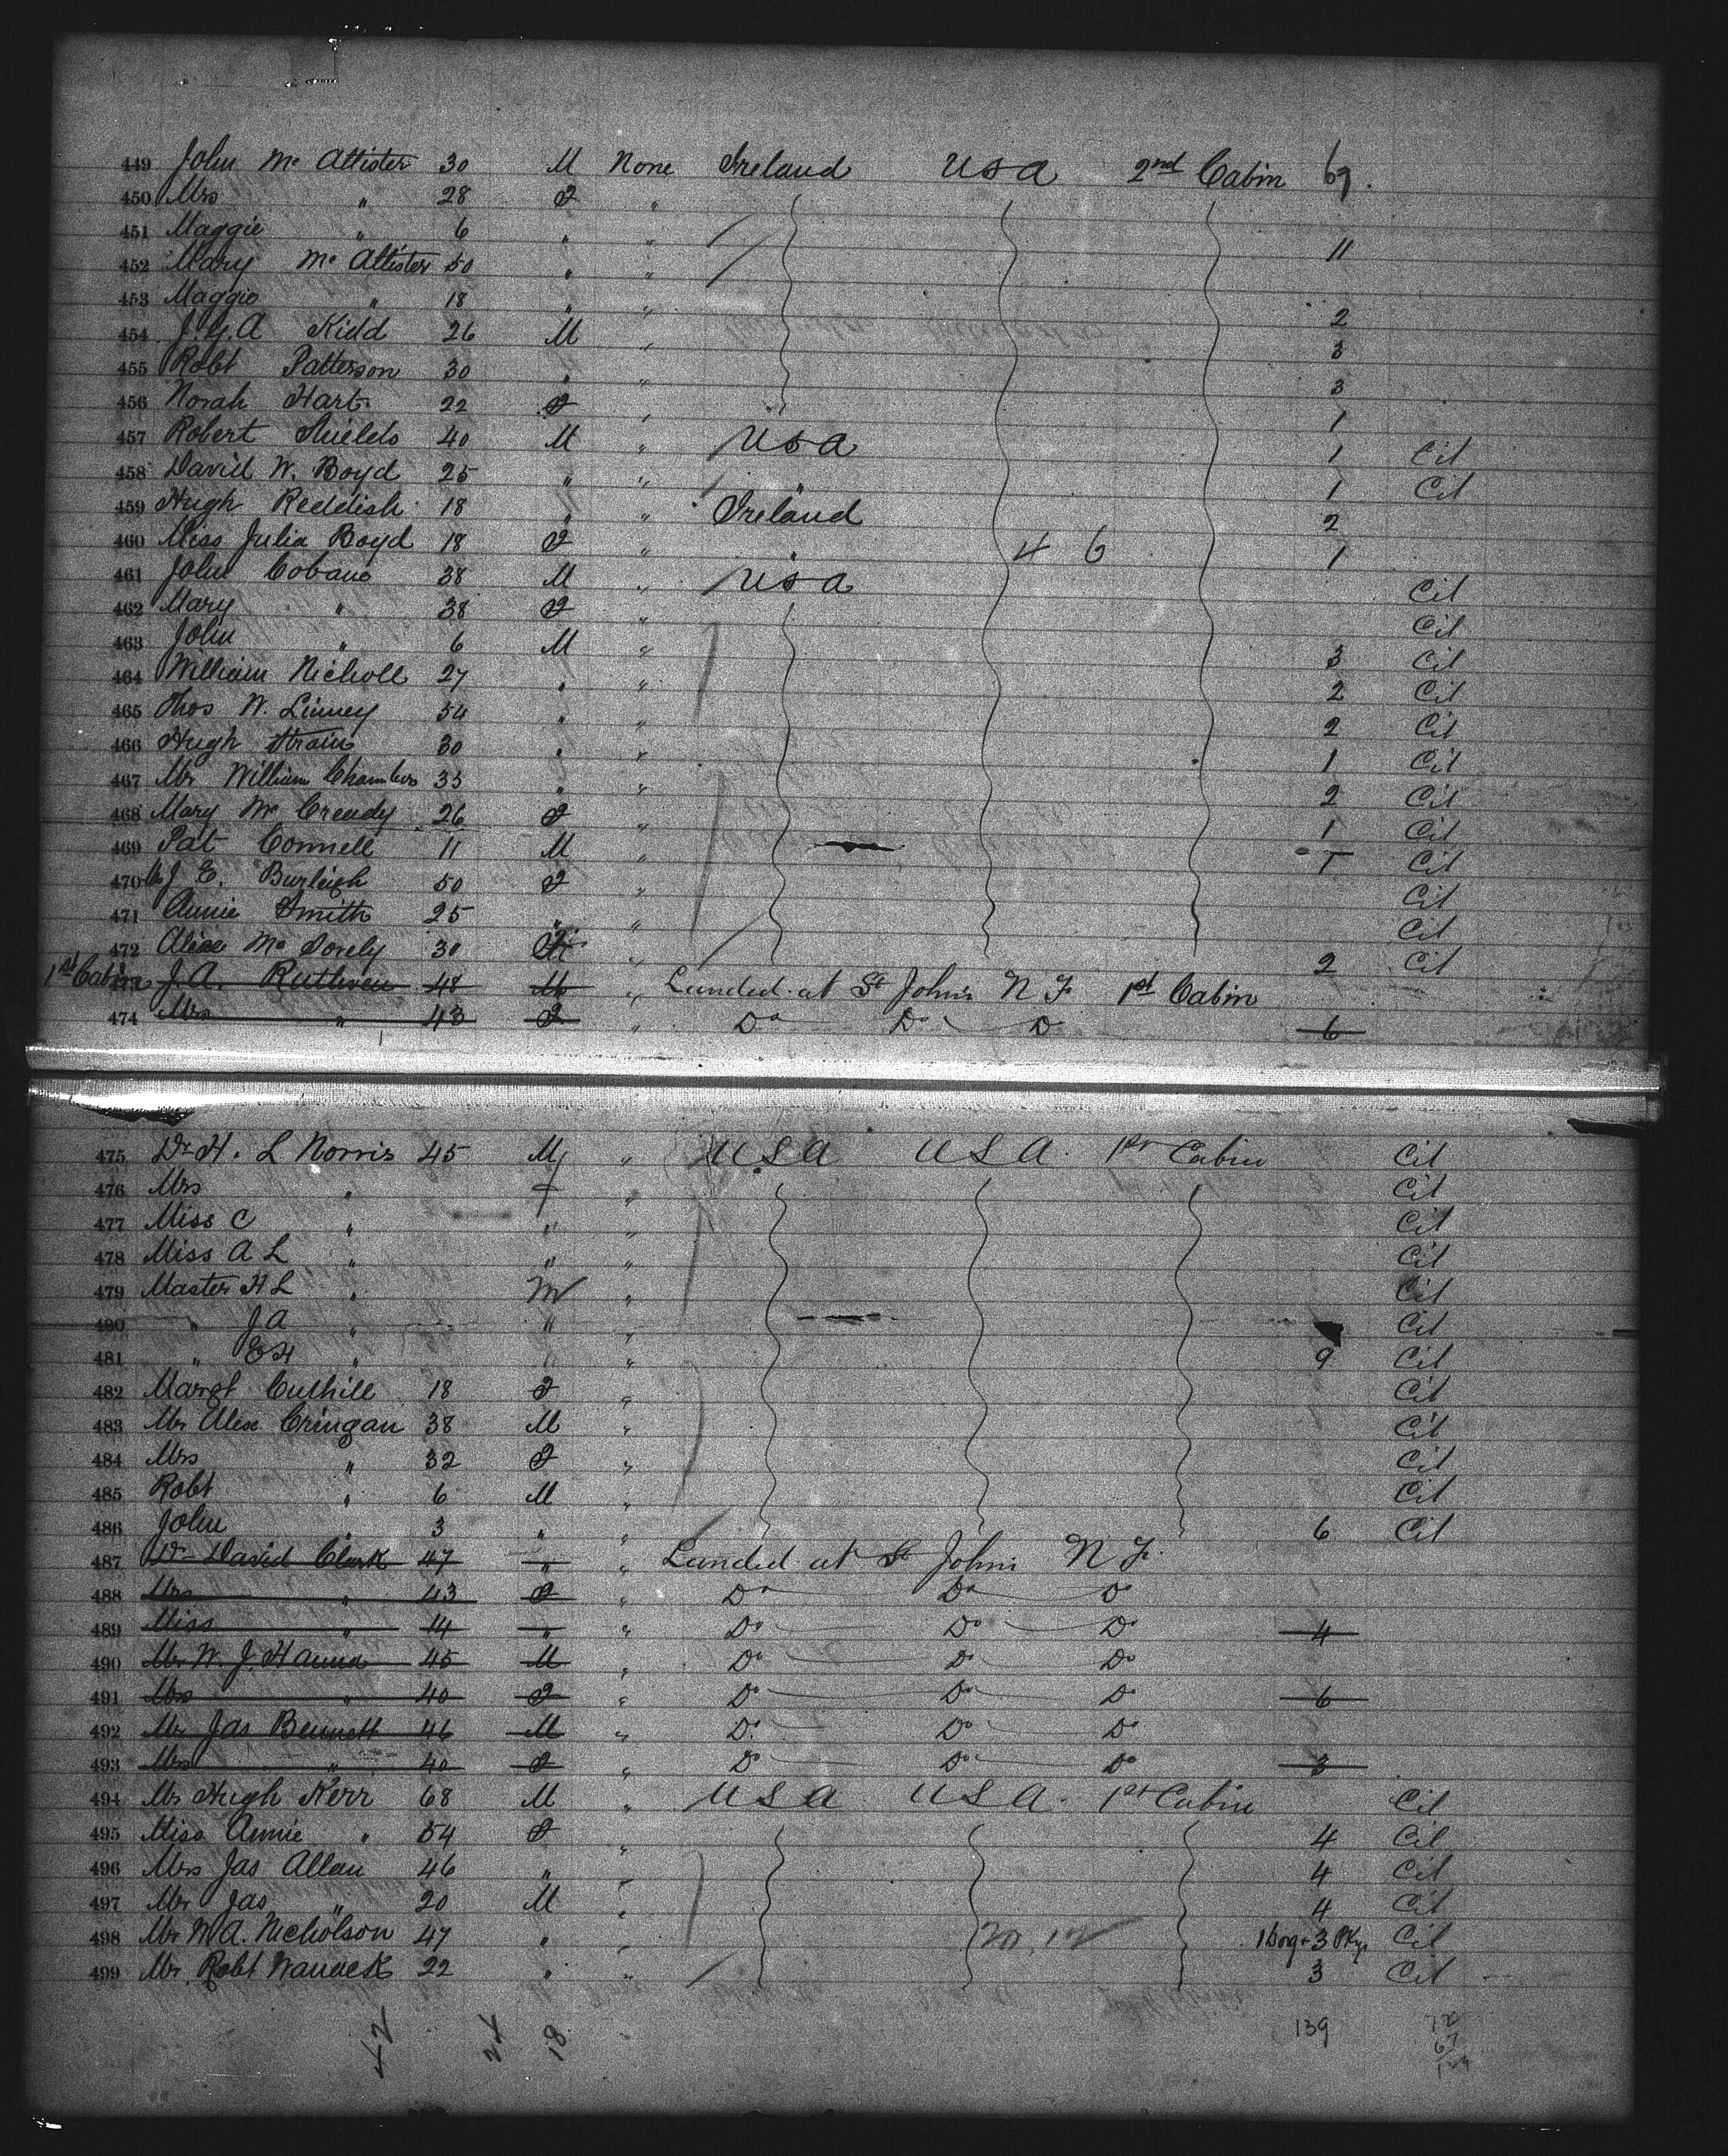 449 John Mc Allister 30 M None Ireland USA 2nd Cabin 67.
450 Mrs " 28 F "
451 Maggie " 6 " " 11
452 Mary Mc Allister 50 " "
453 Maggie " 18 " " 2
454 J.G.A Kidd 26 M " 3
455 Robt Patterson 30 " " 3
456 Norah Hart 22 F " 1
457 Robert Shields 40 M " USA 1 Cit
458 David W. Boyd 25 " " " 1 Cit
459 Hugh Reddish 18 " " Ireland 2
460 Miss Julia Boyd 18 F " " 4 6 1
461 John Cobane 38 M " USA Cit
462 Mary " 38 F " Cit
463 John " 6 M " 3 Cit
464 William Nicholl 27 " " 2 Cit
465 Thos W. Linney 54 " " 2 Cit
466 Hugh Strain 30 " " 1 Cit
467 Mr William Chambers 33 " " 2 Cit
468 Mary Mc Cready 26 F " 1 Cit
469 Pat Connell 11 M " 1 Cit
470 J E. Burleigh 50 F " Cit
471 Annie Smith 25 " " Cit
472 Alice Mc Sorely 30 F " 2 Cit
1st Cabin 473 J.A. Ruthven 48 M " Landed at St John's N F 1st Cabin
474 Mrs " 43 F " Do Do Do 6
475 Dr H. L Norris 45 M " USA USA. 1st Cabin Cit
476 Mrs " f " Cit
477 Miss C " " " Cit
478 Miss A L " " " Cit
479 Master H L " M " Cit
480 " J A " " " Cit
481 " E H " " " 9 Cit
482 Margt Cuthill 18 F " Cit
483 Mr Alex Cringan 38 M " Cit
484 Mrs " 32 F " Cit
485 Robt " 6 M " Cit
486 John " 3 " " 6 Cit
487 Dr David Clark 47 " " Landed at St Johns N F.
488 Mrs " 43 F " Do Do Do
489 Miss " 14 " " Do Do Do 4
490 Mr W. J. Hanna 45 M " Do Do Do
491 Mrs " 40 F " Do Do Do 6
492 Mr Jas Bennett 46 M " Do Do Do
493 Mrs " 40 F " Do Do Do 3
494 Mr Hugh Kerr 68 M " USA USA. 1st Cabin Cit
495 Miss Annie " 54 F " 4 Cit
496 Mrs Jas Allan 46 " " 4 Cit
497 Mr Jas " 20 M " 4 Cit
498 Mr W A. Nicholson 47 " " 1 Dog + 3 Pkgs Cit
499 Mr. Robt 22 " " 3 Cit
42 24 18 139